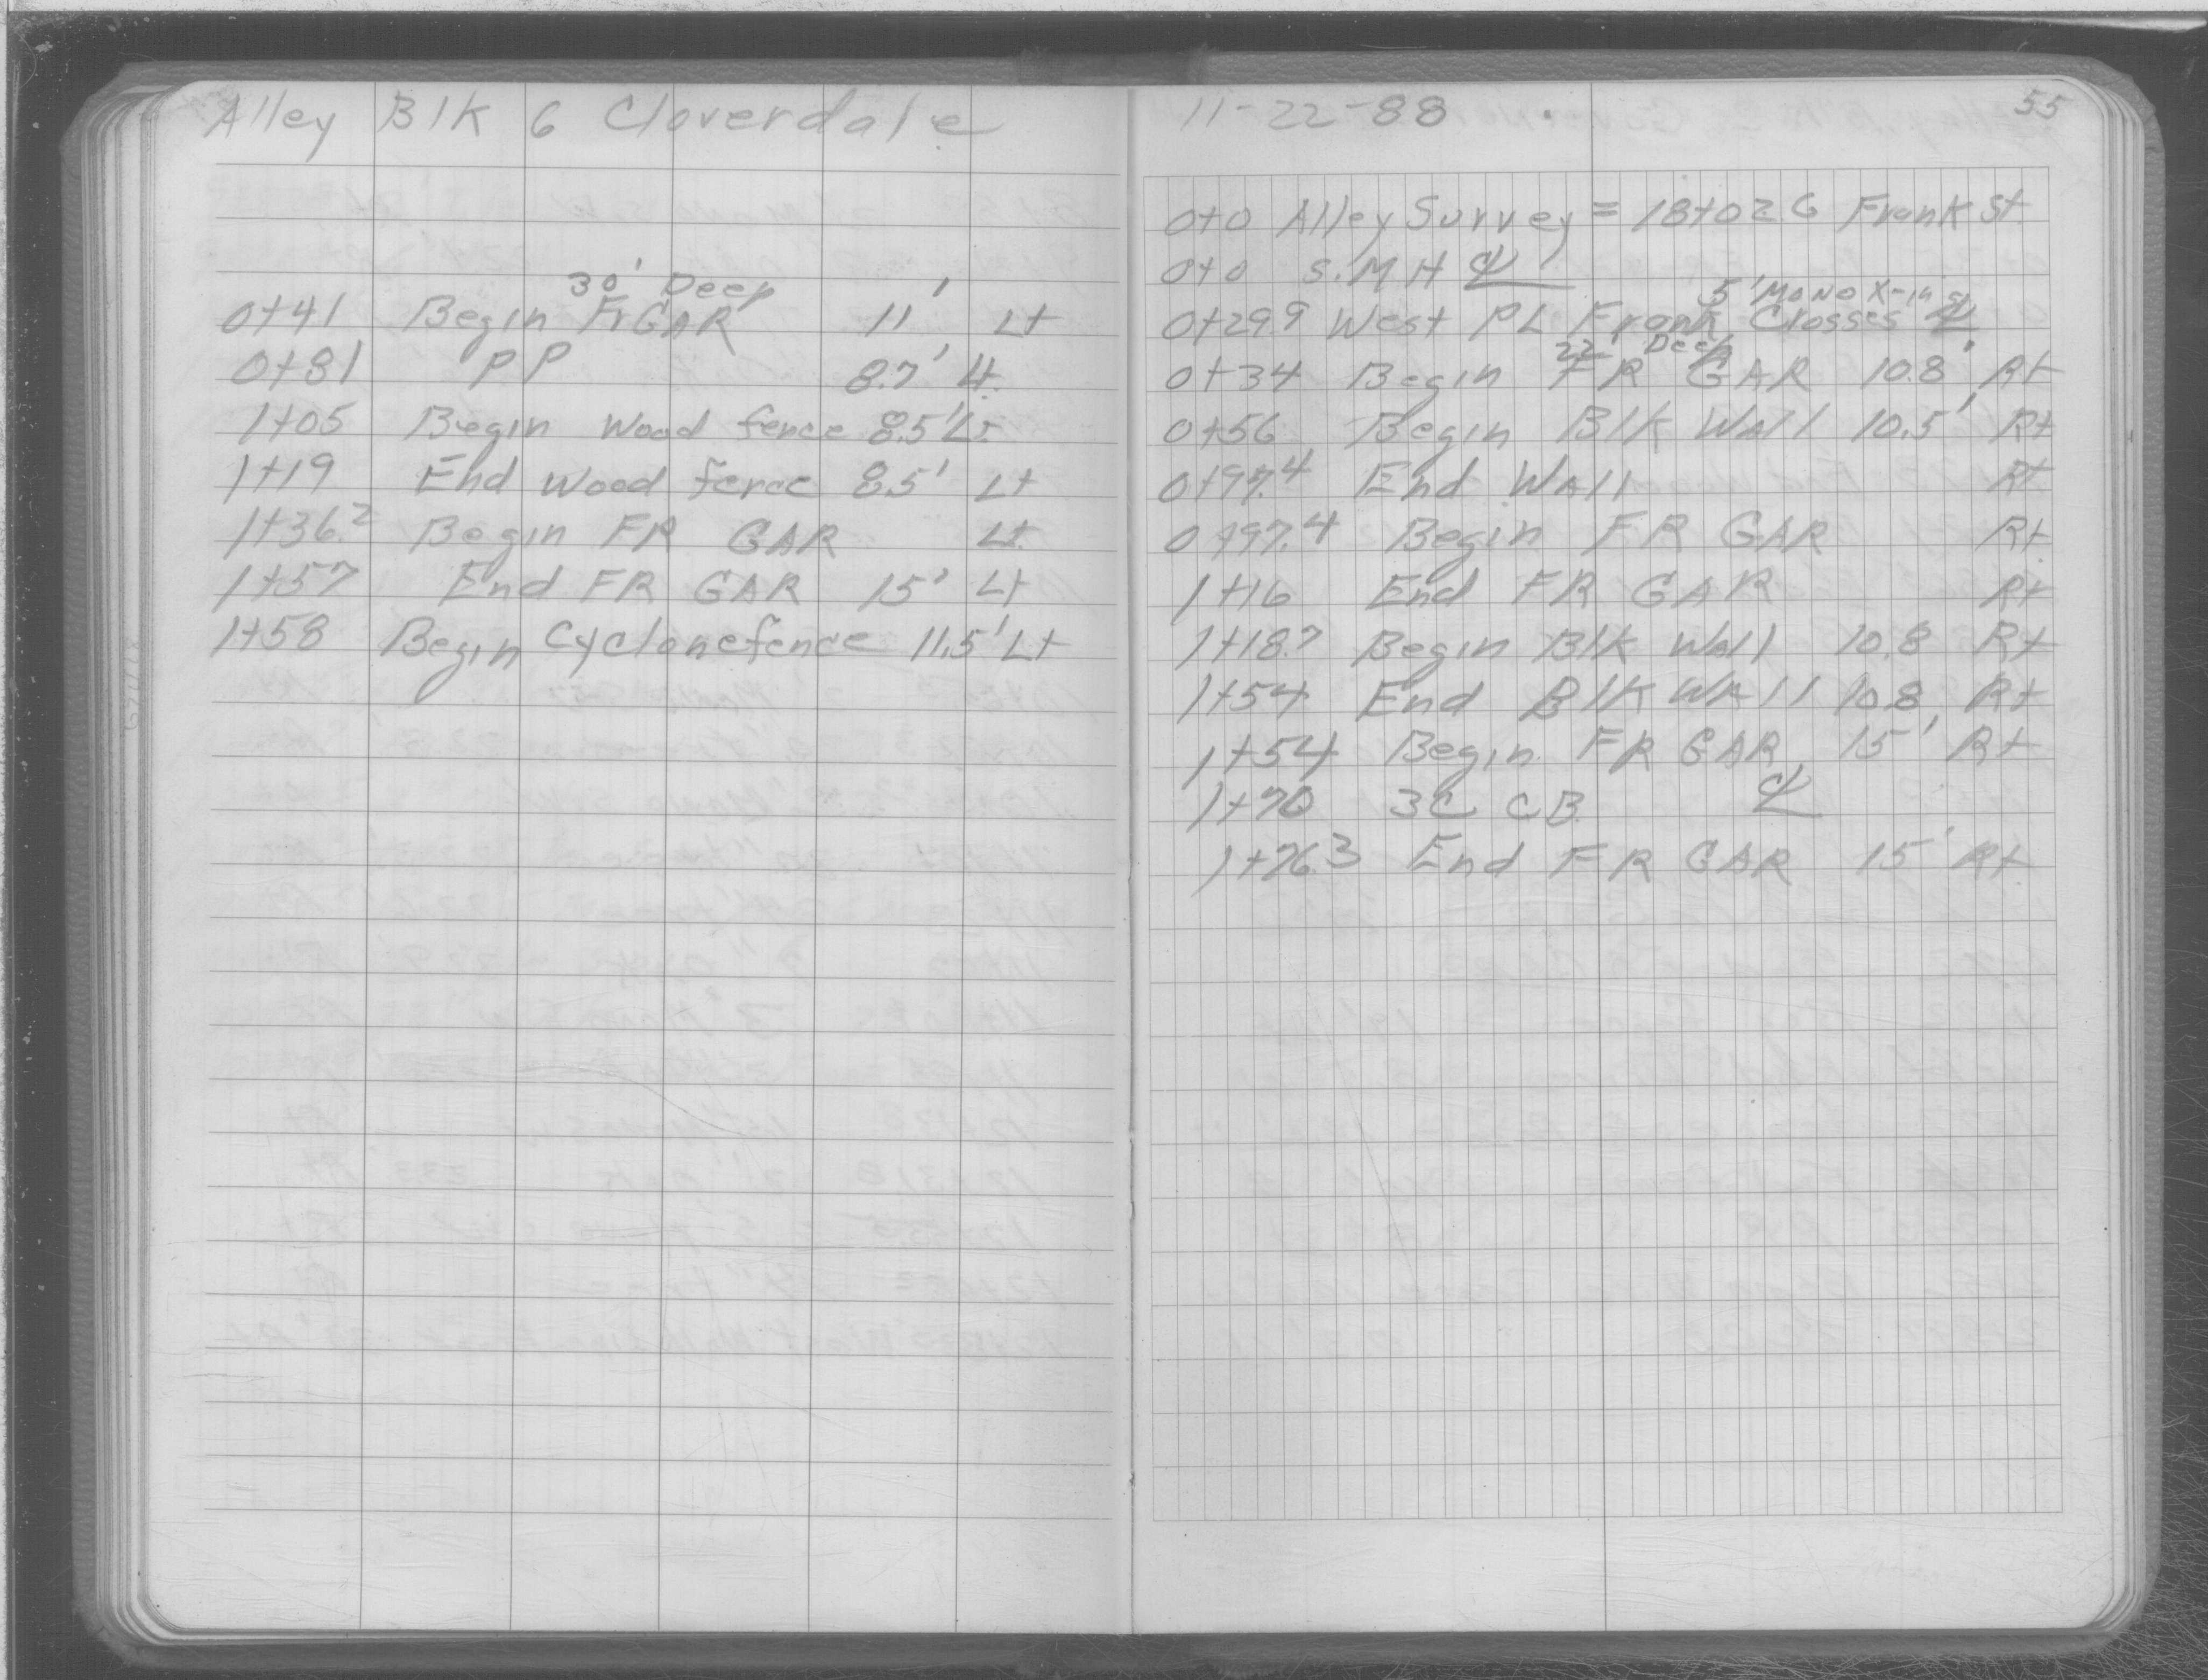 Alley Blk 6 Cloverdale
30' Deep
0+41 Begin Fr GAR 11' Lt
0+81 PP 8.7' Lt
1+05 Begin Wood fence 8.5' Lt
1+19 End Wood fence 8.5' Lt
1+36.2 Begin FR GAR Lt
1+57 End FR GAR 15' Lt
1+58 Begin Cyclone fence 11.5' Lt
11-22-88 55
0+0 Alley Survey = 18+02 G Frank St.
0+0 S.M H ℄
5' Mono X-in
0+29.9 West PL Frank Crosses ℄
22' Deep
0+34 Begin FR GAR 10.8' Rt
0+56 Begin Blk Wall 10.5' Rt
0+97.4 End Wall Rt
0+97.4 Begin FR GAR Rt
1+16 End FR GAR Rt
1+18.7 Begin Blk Wall 10.8 Rt
1+54 End Blk Wall 10.8 Rt
1+54 Begin FR GAR 15' Rt
1+70 3C CB ℄
1+76.3 End FR GAR 15' Rt